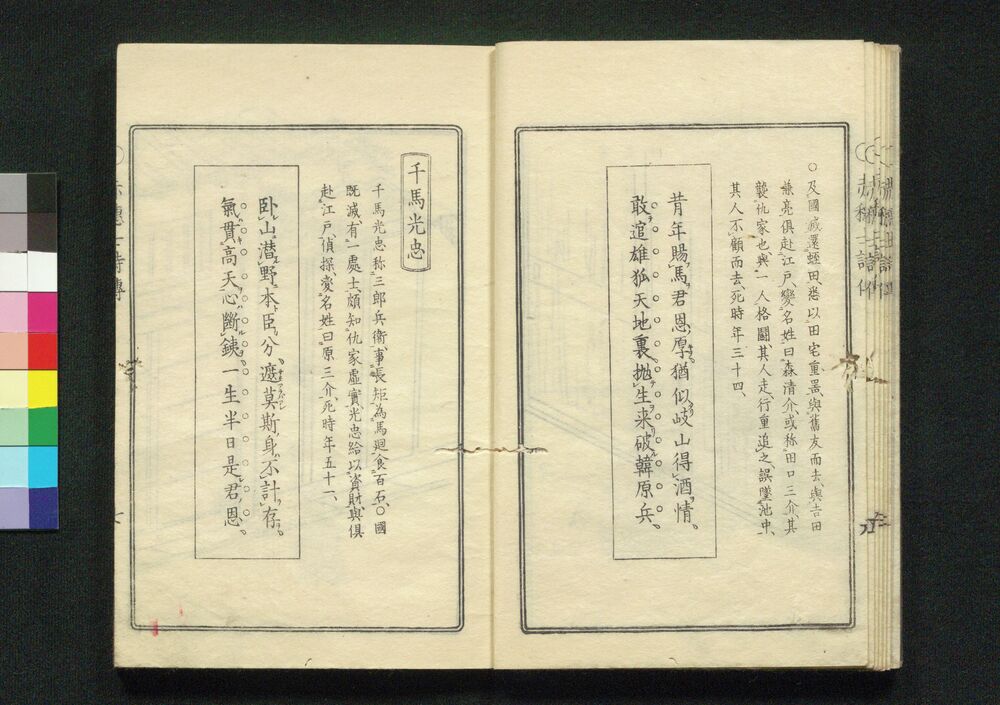 ○及國滅還蛭田悉以田宅重噐與舊友而去與吉田
兼亮俱赴江戸變名姓曰森清介或称田口三介其
襲仇家也與一人格鬪其人走行重追之誤墜池中
其人不顧而去死時年三十四
昔年賜馬君恩厚猶似岐山得酒情
敢追雄狐天地裏抛生来破韓原兵
千馬光忠
千馬光忠称三郎兵衛事長矩為馬廻食百石○國
既滅有一處士頗知仇家虛實光忠給以資財與俱
赴江戸偵探変名姓曰原三介死時年五十一
卧山潜野本臣分遮莫斯身不計存
氣貫高天心断銕一生半日是君恩